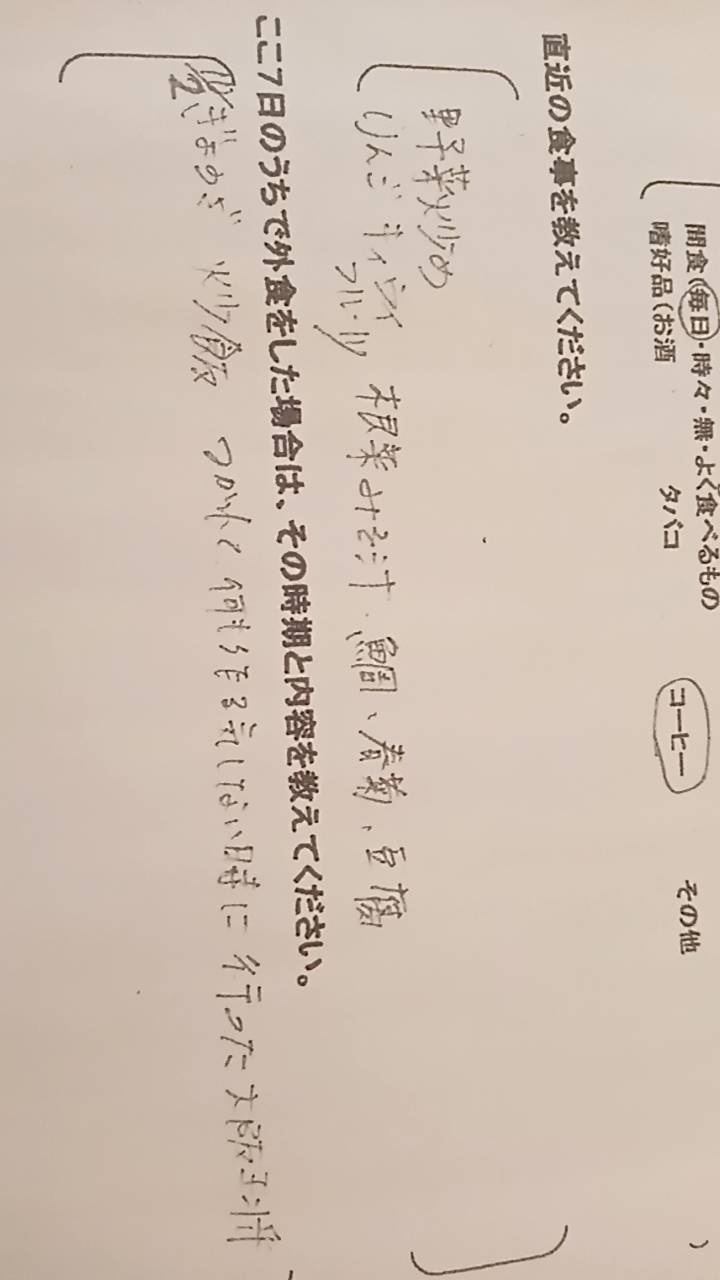 間食(毎日・時々・無・よく食べるもの
嗜好品(お酒 タバコ コーヒー その他 )
直近の食事を教えてください。
野菜炒め
りんご キィウイ 根菜みそ汁、鯛、春菊、豆腐
フルーツ
ここ7日のうちで外食をした場合は、その時期と内容を教えてください。
ぎょうざ 炒飯 つかれて何もやる気しない時に行った大阪王将